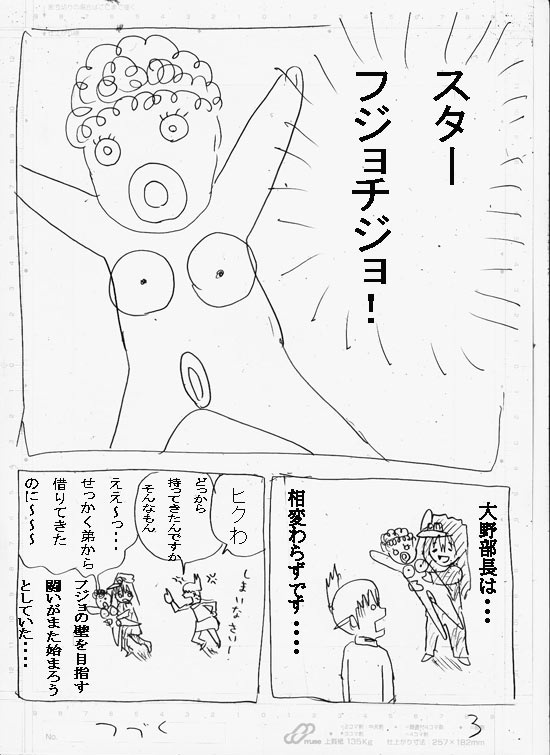 スター
フジョチジョ！
大野部長は・・・
相変わらずです・・・・
ヒクわ
どっから
持ってきたんですか
そんなもん
しまいなさいー！
ええ～っ・・・
せっかく弟から
借りてきた
のに～～～
フジョの壁を目指す
闘いがまた始まろう
としていた・・・・
つづく
3
No.
上質紙 135Kg
仕上がり寸法